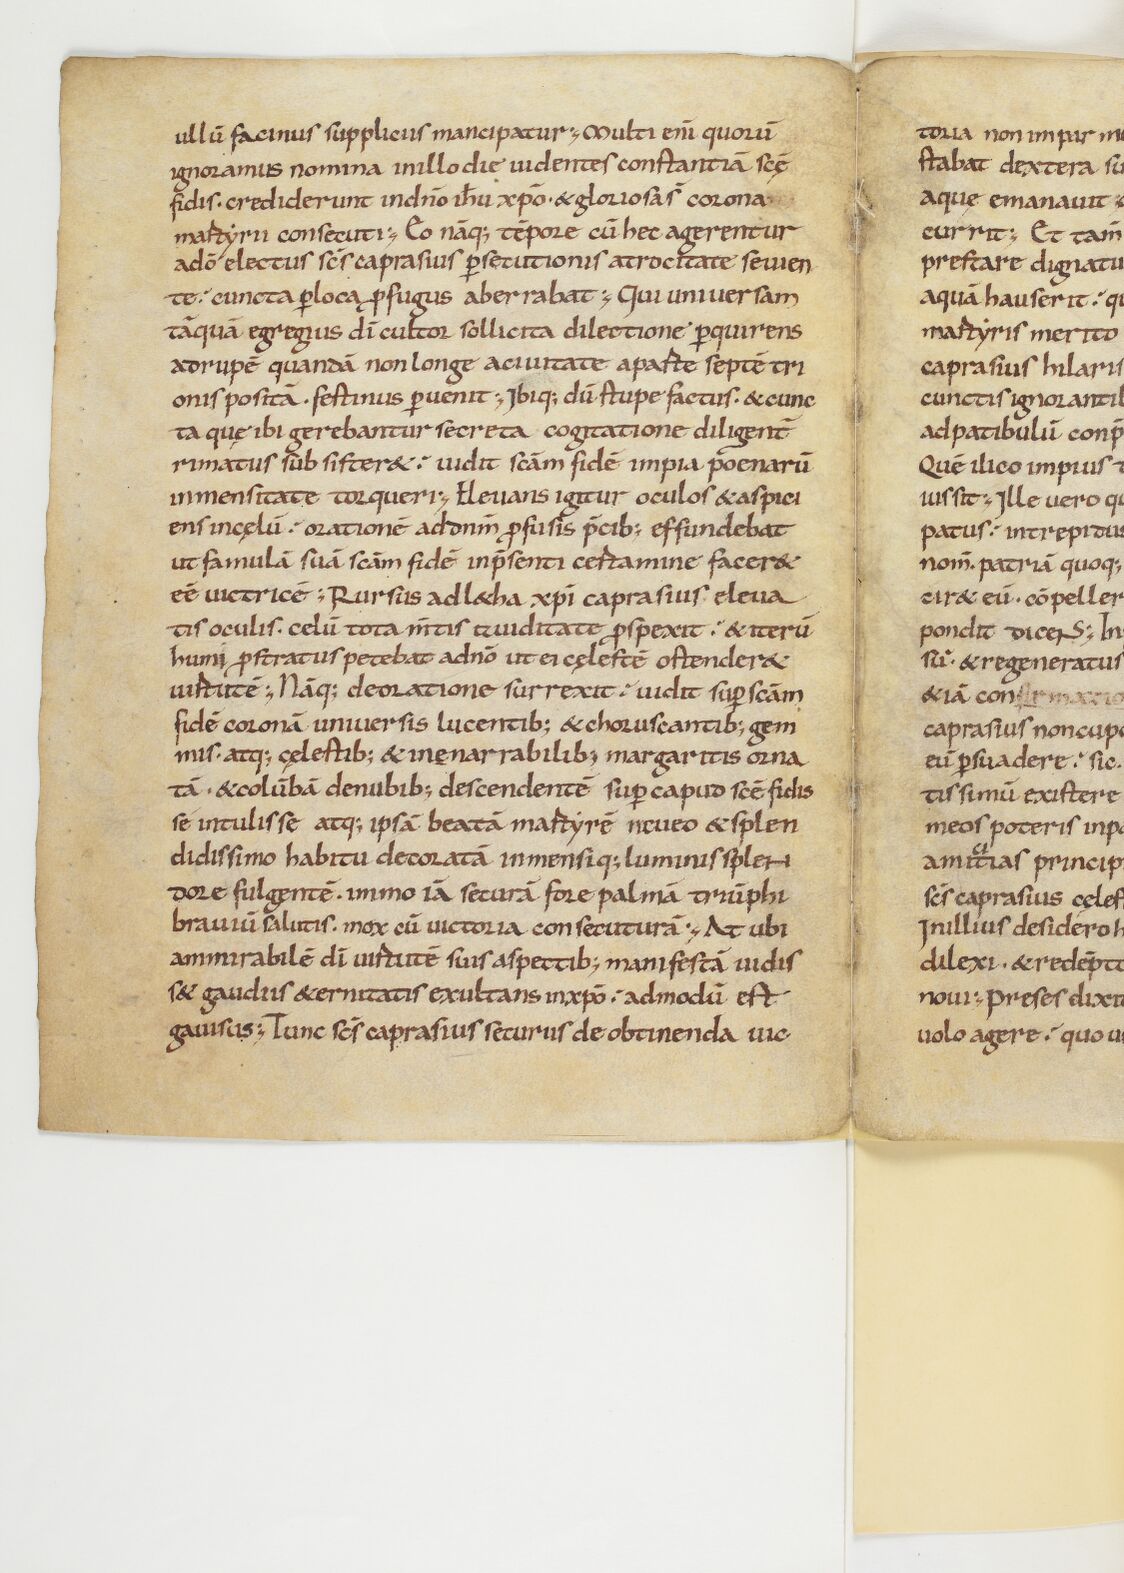 ullū facinus suppliciis mancipatur; Multi enī quorū
ignoramus nomina in illo die uidentes constantiā scę̄
fidis. crediderunt in dnō ihū xp̄o. & gloriosā s̄ corona
martyrii consecuti; Eo nāq; tēpore cū hec agerentur
a dō electus scs̄ caprasius p̄secutionis atrocitate seuien
te. cuncta p̄ loca p̄fugus aberrabat; Qui uniuersam
tāquā egregius dī cultor sollicita dilectione p̄quirens
ad rupē quandā non longe a ciuitate a parte septē tri
onis positā. festinus p̄uenit; Ibiq; dū stupefactus. & cunc
ta quę ibi gerebantur secreta cogitatione diligent̄
rimatus subsister&. uidit scām fidē impia p̄oenarū
inmensitate torqueri; Eleuans igitur oculos & aspici
ens in cęlū. orationē ad dnm̄ p̄fusis p̄cib; effundebat
ut famulā suā scām fidē in p̄senti certamine facer&
eē uictricē; Rursus adl&ha xp̄i caprasius eleua
tis oculis. celū tota m̄tis auiditate p̄spexit. & iterū
humi p̄stratus petebat a dnō ut ei cęlestē ostender&
uirtutē; Nāq; de oratione surrexit. uidit sup̄ scām
fidē coronā uniuersis lucentib; & choruscantib; gem
mis. atq; cęlestib; & inęnarrabilib; margaritis orna
tā. & colūbā de nubib; descendentē sup̄ caput scē fidis
se intulisse atq; ipsā beatā martyrē niueo & splen
didissimo habitu decoratā inmensiq; luminis splen
dore fulgentē. immo iā securā fore palmā triūphi
brauiū salutis. mox cū uictoria consecuturā; At ubi
ammirabilē dī uirtutē suis aspectib; manifestā uidis
s& gaudiis &ernitatis exultans in xp̄o. admodū est
gauisus; Tunc scs̄ caprasius securus de obtinenda uic
toria non impar
stabat dextera
aquę emanauit
currit; Et tam̄
prestare
aquā hauserit.
martyris merito
caprasius hilaris
cunctis
ad patibulū
Quē ilico impius
iussit; Ille uero
patus. intrepidus
nom̄. patriā quoq;
cir& eū. cōpeller
pondit dicens; In
sū. & regeneratus
& iā confirmatio
caprasius non
eū p̄suadere. sic.
tissimū existere
meos poteris
amicitias
scs̄ caprasius
In illius desidero
dilexi. &
noui; Preses
uolo agere. quo